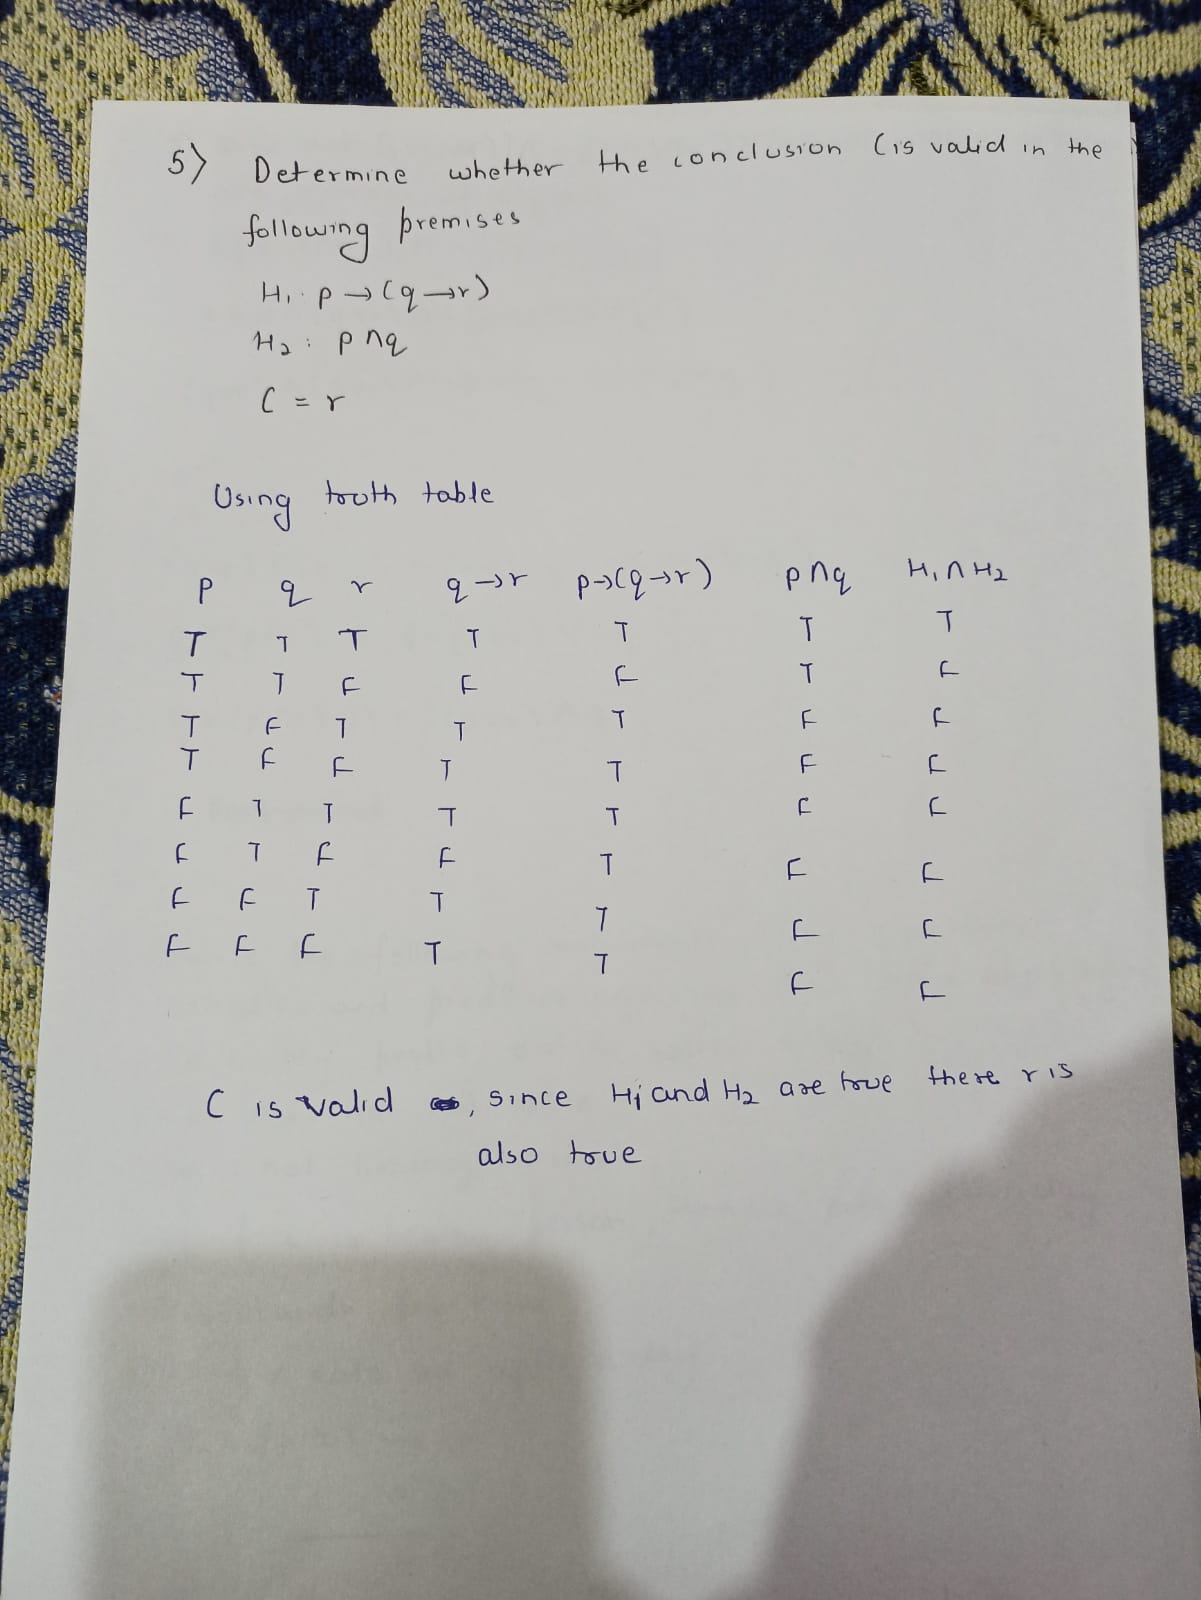 5) Determine whether the conclusion C is valid in the
following premises
H₁: p → (q → r)
H₂: p ∩ q
C = r
Using truth table
p q r q → r p → (q → r) p ∩ q H₁ ∩ H₂
T T T T T T T
T T F F F T F
T F T T T F F
T F F T T F F
F T T T T F F
F T F F T F F
F F T T T F F
F F F T T F F
C is valid , since H₁ and H₂ are true there r is
also true